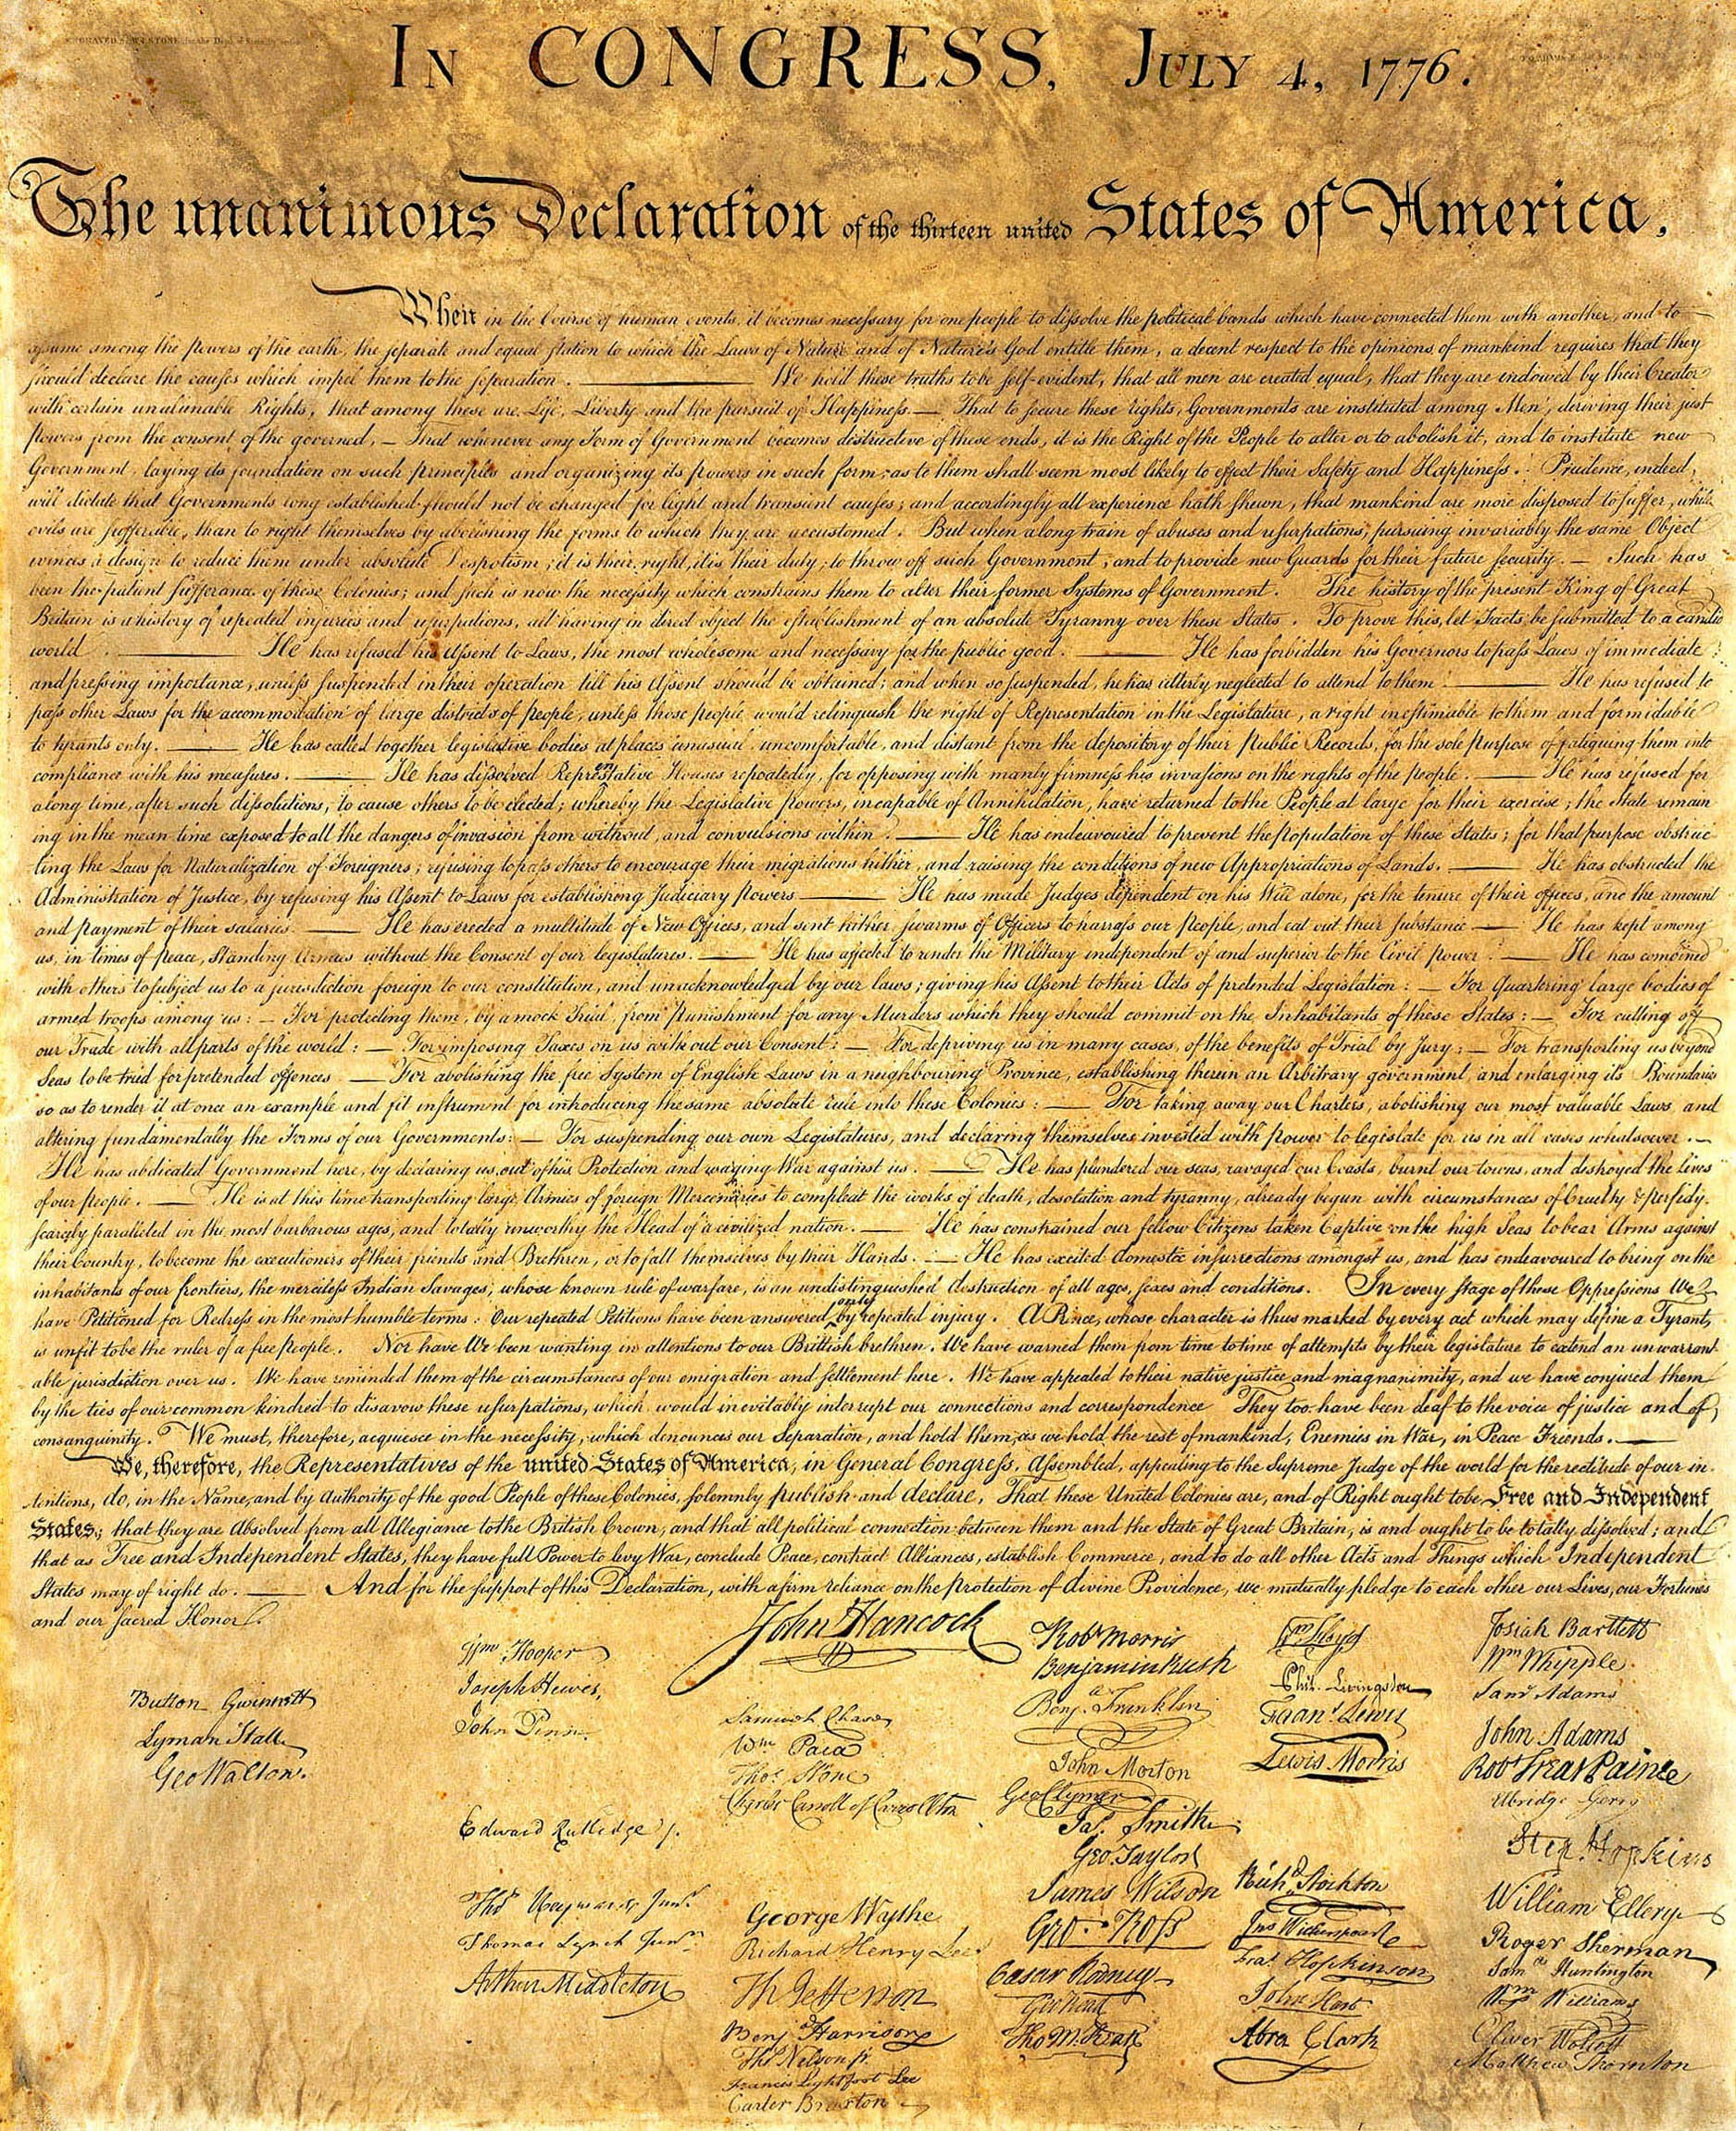 In CONGRESS, July 4, 1776.
The unanimous Declaration of the thirteen united States of America,
When in the Course of human events, it becomes necessary for one people to dissolve the political bands which have connected them with another, and to
assume among the powers of the earth, the separate and equal station to which the Laws of Nature and of Nature's God entitle them, a decent respect to the opinions of mankind requires that they
should declare the causes which impel them to the separation. — We hold these truths to be self-evident, that all men are created equal, that they are endowed by their Creator
with certain unalienable Rights, that among these are Life, Liberty and the pursuit of Happiness. — That to secure these rights, Governments are instituted among Men, deriving their just
powers from the consent of the governed, — That whenever any Form of Government becomes destructive of these ends, it is the Right of the People to alter or to abolish it, and to institute new
Government, laying its foundation on such principles and organizing its powers in such form, as to them shall seem most likely to effect their Safety and Happiness. Prudence, indeed,
will dictate that Governments long established should not be changed for light and transient causes; and accordingly all experience hath shewn, that mankind are more disposed to suffer, while
evils are sufferable, than to right themselves by abolishing the forms to which they are accustomed. But when a long train of abuses and usurpations, pursuing invariably the same Object
evinces a design to reduce them under absolute Despotism, it is their right, it is their duty, to throw off such Government, and to provide new Guards for their future security. — Such has
been the patient sufferance of these Colonies; and such is now the necessity which constrains them to alter their former Systems of Government. The history of the present King of Great
Britain is a history of repeated injuries and usurpations, all having in direct object the establishment of an absolute Tyranny over these States. To prove this, let Facts be submitted to a candid
world. — He has refused his Assent to Laws, the most wholesome and necessary for the public good. — He has forbidden his Governors to pass Laws of immediate
and pressing importance, unless suspended in their operation till his Assent should be obtained; and when so suspended, he has utterly neglected to attend to them. — He has refused to
pass other Laws for the accommodation of large districts of people, unless those people would relinquish the right of Representation in the Legislature, a right inestimable to them and formidable
to tyrants only. — He has called together legislative bodies at places unusual, uncomfortable, and distant from the depository of their Public Records, for the sole purpose of fatiguing them into
compliance with his measures. — He has dissolved Representative Houses repeatedly, for opposing with manly firmness his invasions on the rights of the people. — He has refused for
a long time, after such dissolutions, to cause others to be elected; whereby the Legislative powers, incapable of Annihilation, have returned to the People at large for their exercise; the State remain
ing in the mean time exposed to all the dangers of invasion from without, and convulsions within. — He has endeavoured to prevent the population of these States; for that purpose obstruc
ting the Laws for Naturalization of Foreigners; refusing to pass others to encourage their migrations hither, and raising the conditions of new Appropriations of Lands. — He has obstructed the
Administration of Justice, by refusing his Assent to Laws for establishing Judiciary powers — He has made Judges dependent on his Will alone, for the tenure of their offices, and the amount
and payment of their salaries. — He has erected a multitude of New Offices, and sent hither swarms of Officers to harrass our people, and eat out their substance — He has kept among
us, in times of peace, Standing Armies without the Consent of our legislatures. — He has affected to render the Military independent of and superior to the Civil power. — He has combined
with others to subject us to a jurisdiction foreign to our constitution, and unacknowledged by our laws; giving his Assent to their Acts of pretended Legislation: — For quartering large bodies of
armed troops among us: — For protecting them, by a mock Trial, from punishment for any Murders which they should commit on the Inhabitants of these States: — For cutting off
our Trade with all parts of the world: — For imposing Taxes on us without our Consent: — For depriving us in many cases, of the benefits of Trial by Jury: — For transporting us beyond
Seas to be tried for pretended offences — For abolishing the free System of English Laws in a neighbouring Province, establishing therein an Arbitrary government, and enlarging its Boundaries
so as to render it at once an example and fit instrument for introducing the same absolute rule into these Colonies: — For taking away our Charters, abolishing our most valuable Laws, and
altering fundamentally the Forms of our Governments: — For suspending our own Legislatures, and declaring themselves invested with power to legislate for us in all cases whatsoever. —
He has abdicated Government here, by declaring us out of his Protection and waging War against us. — He has plundered our seas, ravaged our Coasts, burnt our towns, and destroyed the lives
of our people. — He is at this time transporting large Armies of foreign Mercenaries to compleat the works of death, desolation and tyranny, already begun with circumstances of Cruelty & perfidy
scarcely paralleled in the most barbarous ages, and totally unworthy the Head of a civilized nation. — He has constrained our fellow Citizens taken Captive on the high Seas to bear Arms against
their Country, to become the executioners of their friends and Brethren, or to fall themselves by their Hands. — He has excited domestic insurrections amongst us, and has endeavoured to bring on the
inhabitants of our frontiers, the merciless Indian Savages, whose known rule of warfare, is an undistinguished destruction of all ages, sexes and conditions. In every stage of these Oppressions We
have Petitioned for Redress in the most humble terms: Our repeated Petitions have been answered only by repeated injury. A Prince, whose character is thus marked by every act which may define a Tyrant,
is unfit to be the ruler of a free people. Nor have We been wanting in attentions to our Brittish brethren. We have warned them from time to time of attempts by their legislature to extend an unwarrant
able jurisdiction over us. We have reminded them of the circumstances of our emigration and settlement here. We have appealed to their native justice and magnanimity, and we have conjured them
by the ties of our common kindred to disavow these usurpations, which would inevitably interrupt our connections and correspondence They too have been deaf to the voice of justice and of
consanguinity. We must, therefore, acquiesce in the necessity, which denounces our Separation, and hold them, as we hold the rest of mankind, Enemies in War, in Peace Friends. —
We, therefore, the Representatives of the united States of America, in General Congress, Assembled, appealing to the Supreme Judge of the world for the rectitude of our in
tentions, do, in the Name, and by Authority of the good People of these Colonies, solemnly publish and declare, That these United Colonies are, and of Right ought to be Free and Independent
States; that they are Absolved from all Allegiance to the British Crown, and that all political connection between them and the State of Great Britain, is and ought to be totally dissolved; and
that as Free and Independent States, they have full Power to levy War, conclude Peace, contract Alliances, establish Commerce, and to do all other Acts and Things which Independent
States may of right do. — And for the support of this Declaration, with a firm reliance on the protection of divine Providence, we mutually pledge to each other our Lives, our Fortunes
and our sacred Honor.
Button Gwinnett
Lyman Hall
Geo Walton.
Wm Hooper
Joseph Hewes,
John Penn
Edward Rutledge
Thos Heyward Junr.
Thomas Lynch Junr.
Arthur Middleton
John Hancock
Samuel Chase
Wm Paca
Thos Stone
Charles Carroll of Carrollton
George Wythe
Richard Henry Lee
Th Jefferson
Benj Harrison
Thos Nelson jr.
Francis Lightfoot Lee
Carter Braxton
Robt Morris
Benjamin Rush
Benja. Franklin
John Morton
Geo Clymer
Jas. Smith
Geo. Taylor
James Wilson
Geo. Ross
Caesar Rodney
Geo Read
Tho M:Kean
Wm Floyd
Phil. Livingston
Frans. Lewis
Lewis Morris
Richd. Stockton
Jno Witherspoon
Fras. Hopkinson
John Hart
Abra Clark
Josiah Bartlett
Wm Whipple
Saml Adams
John Adams
Robt Treat Paine
Elbridge Gerry
Step. Hopkins
William Ellery
Roger Sherman
Samel Huntington
Wm Williams
Oliver Wolcott
Matthew Thornton